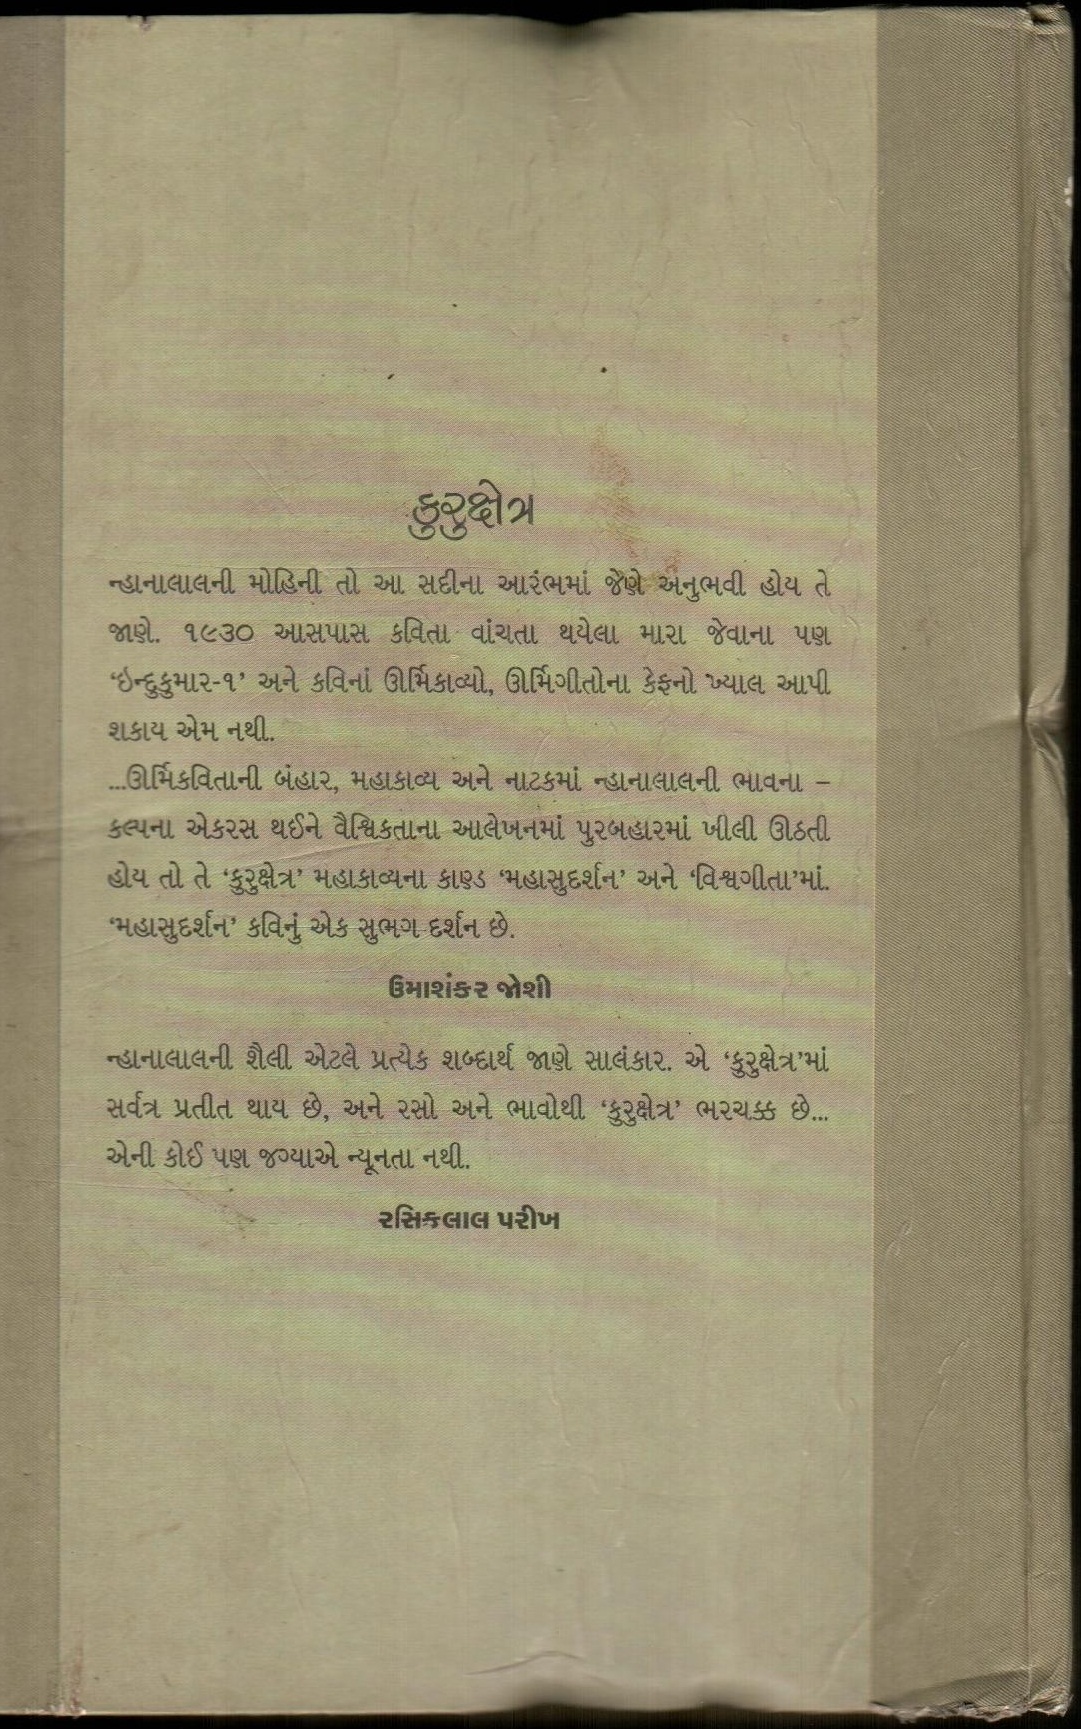 કુરુક્ષેત્ર
ન્હાનાલાલની મોહિની તો આ સદીના આરંભમાં જેણે અનુભવી હોય તે
જાણે. ૧૯૩૦ આસપાસ કવિતા વાંચતા થયેલા મારા જેવાના પણ
‘ઇન્દુકુમાર-૧’ અને કવિનાં ઊર્મિકાવ્યો, ઊર્મિગીતોના કેફનો ખ્યાલ આપી
શકાય એમ નથી.
...ઊર્મિકવિતાની બંહાર, મહાકાવ્ય અને નાટકમાં ન્હાનાલાલની ભાવના –
કલ્પના એકરસ થઈને વૈશ્વિકતાના આલેખનમાં પુરબહારમાં ખીલી ઊઠતી
હોય તો તે ‘કુરુક્ષેત્ર’ મહાકાવ્યના કાણ્ડ ‘મહાસુદર્શન’ અને ‘વિશ્વગીતા’માં.
‘મહાસુદર્શન’ કવિનું એક સુભગ દર્શન છે.
ઉમાશંકર જોશી
ન્હાનાલાલની શૈલી એટલે પ્રત્યેક શબ્દાર્થ જાણે સાલંકાર. એ ‘કુરુક્ષેત્ર’માં
સર્વત્ર પ્રતીત થાય છે, અને રસો અને ભાવોથી ‘કુરુક્ષેત્ર’ ભરચક્ક છે...
એની કોઈ પણ જગ્યાએ ન્યૂનતા નથી.
રસિકલાલ પરીખ